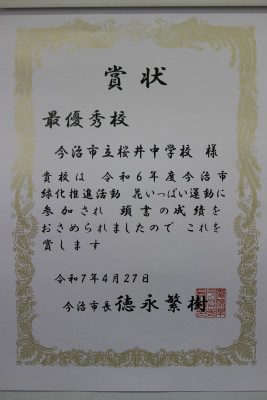 賞状
最優秀校
今治市立桜井中学校 様
貴校は 令和6年度今治市
緑化推進活動 花いっぱい運動に
参加され 頭書の成績を
おさめられましたので これを
賞します
令和7年4月27日
今治市長 徳永繁樹